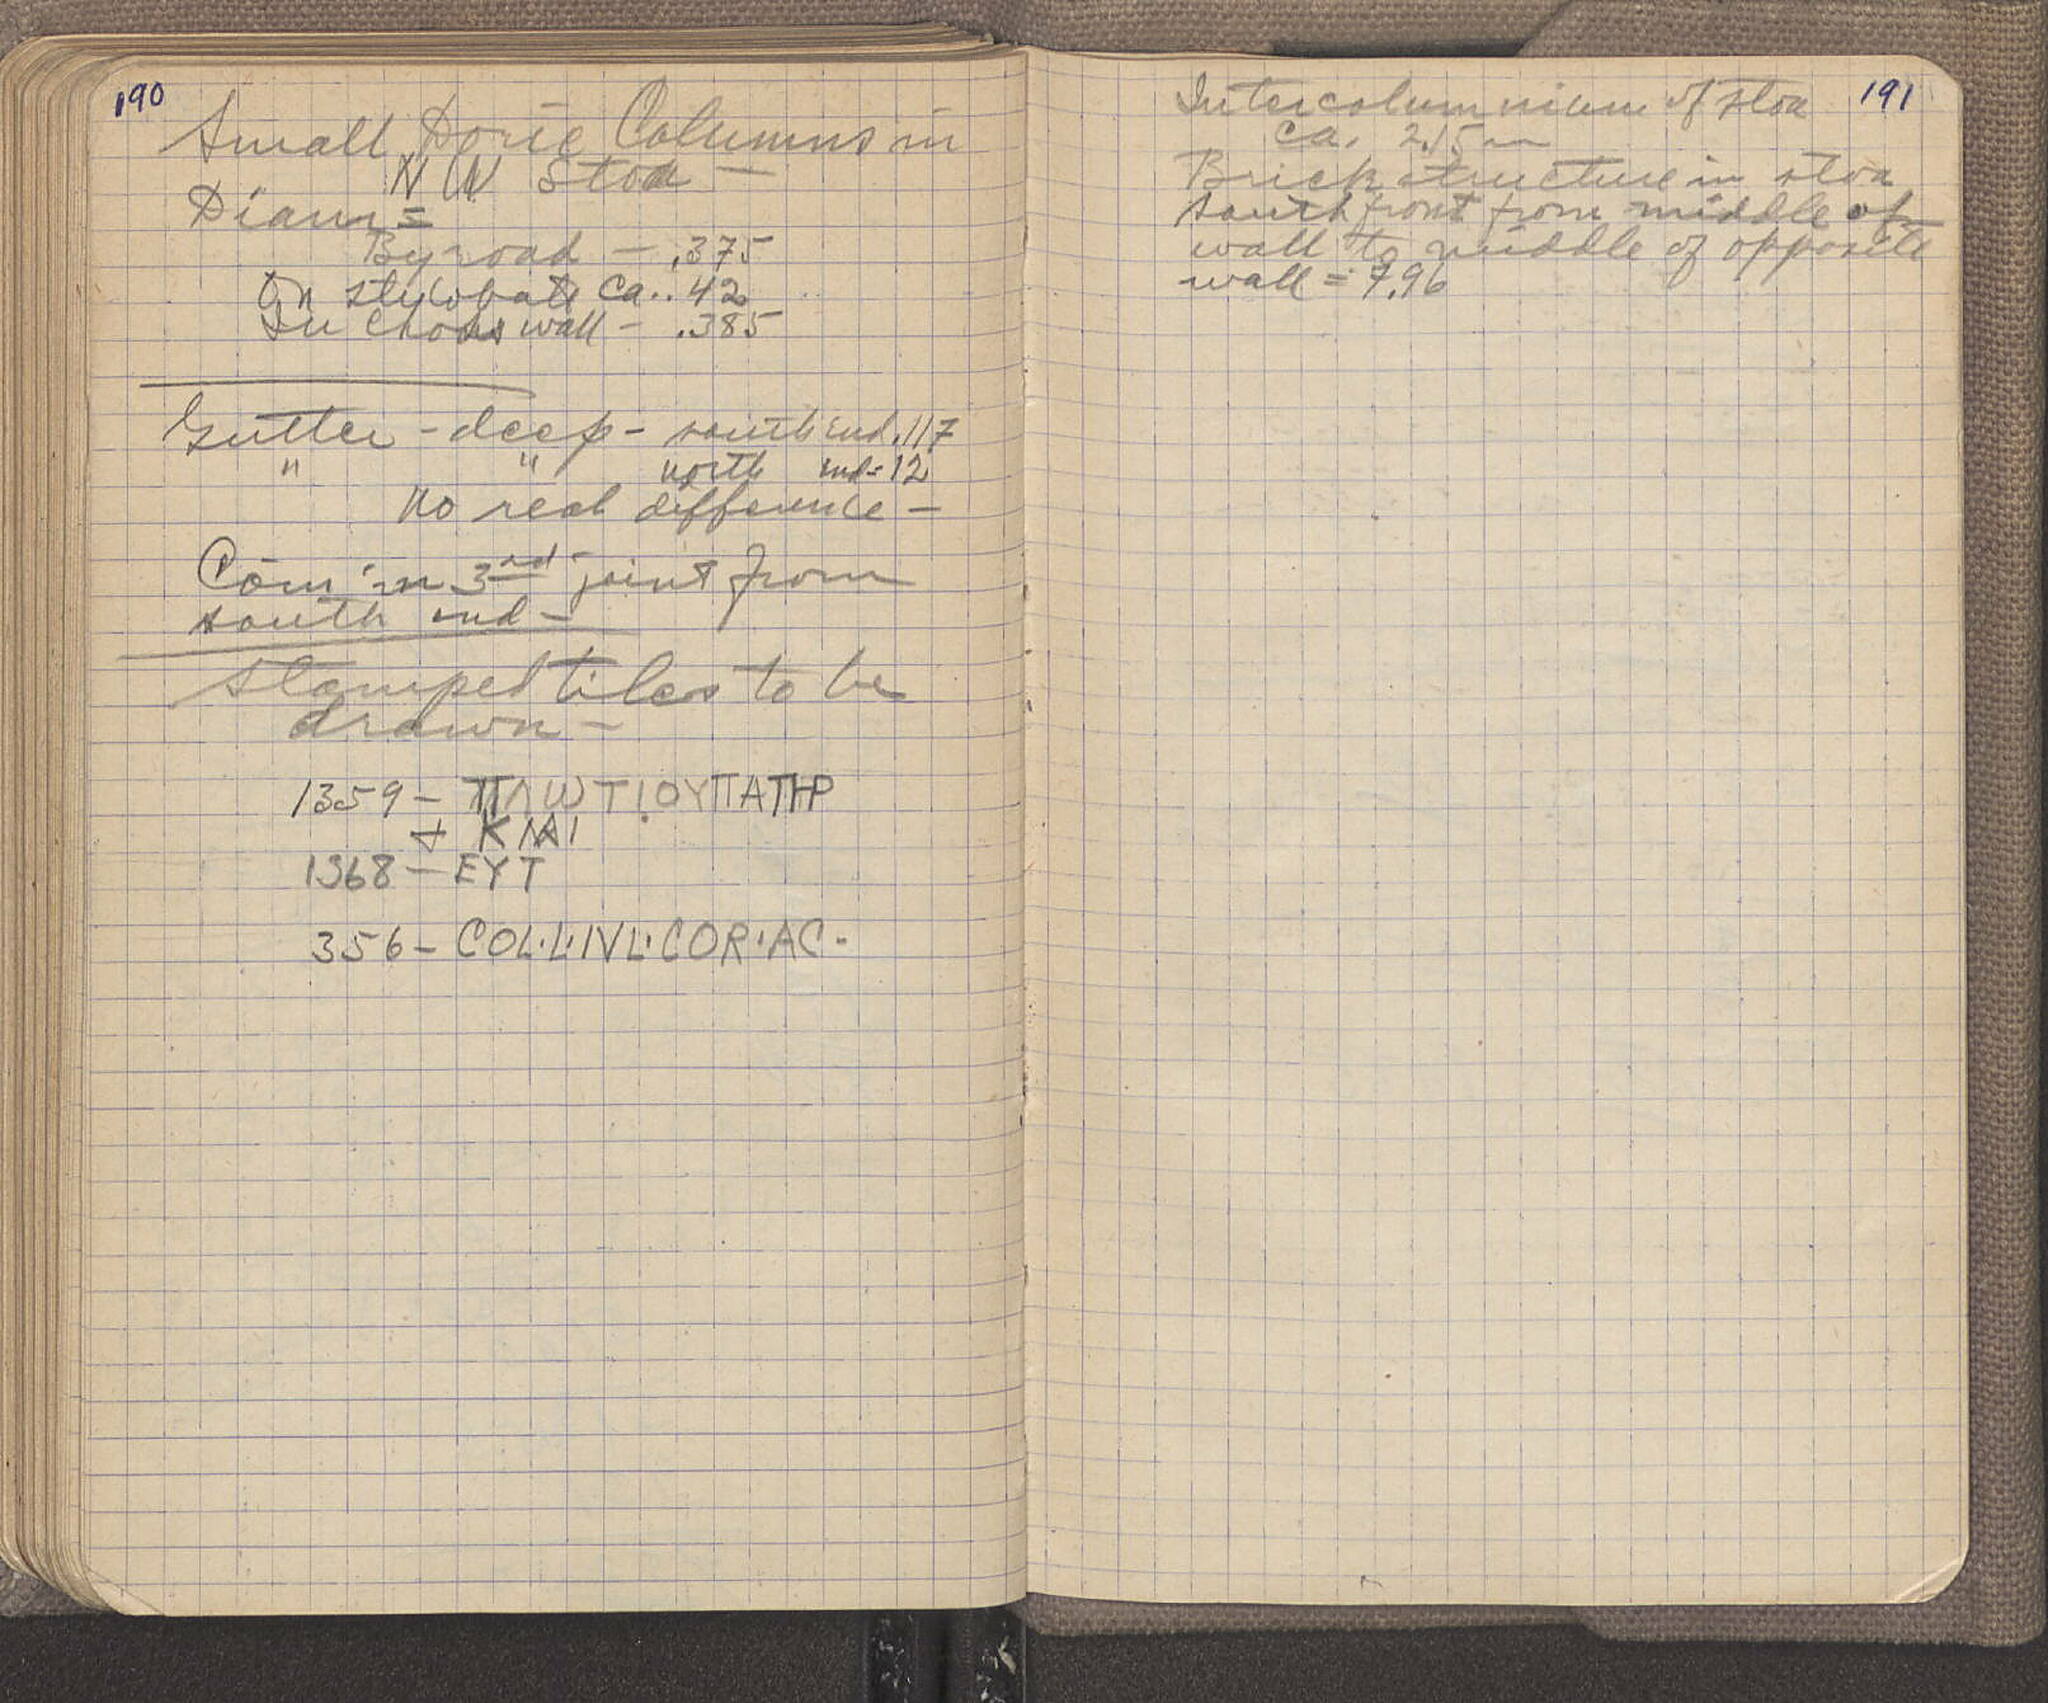 190
Small Doric Columns in
NW Stoa —
Diam =
By road — .375
On stylobate ca. .42
In Choos wall — .385
Gutter - deep - south end .117
" " north end = 12
No real difference —
Coin in 3rd joint from
south end —
Stamped tiles to be
drawn —
1359 — ΠΛΩΤΙΟΥΠΑΤΗΡ
+ ΚΜΑΙ
1368 — ΕΥΤ
356 — COL·L·IVL·COR·AC -
191
Intercolumnium of stoa
ca. 2.15 m
Brick structure in stoa
south front from middle of
wall to middle of opposite
wall = 7.96